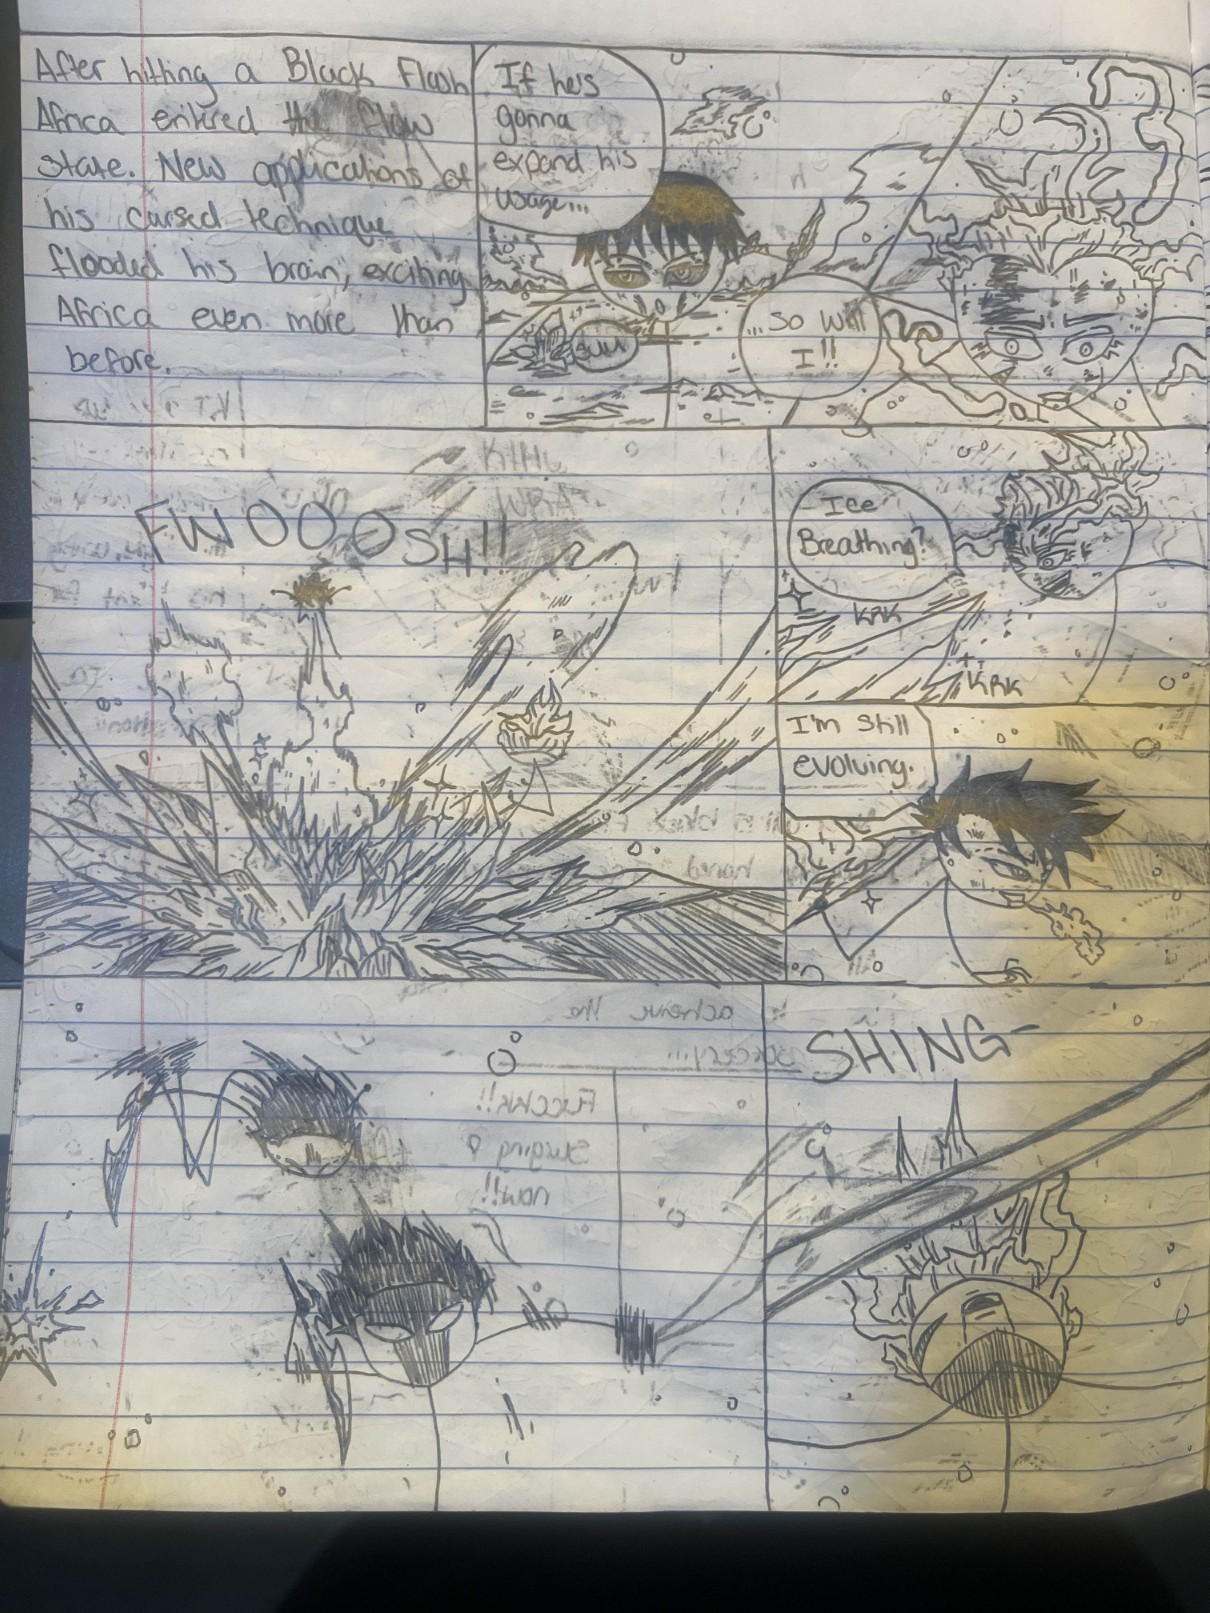 After hitting a Black Flash
Africa entered the flow
state. New applications of
his cursed technique
flooded his brain, exciting
Africa even more than
before.
If he's
gonna
expand his
usage...
...So Will
I!!
FWOOOOSH!!
Ice
Breathing?
KRK
KRK
I'm still
evolving.
SHING-
achieve the
sorcery!!!
Fucckk!!
Surging
now!!!